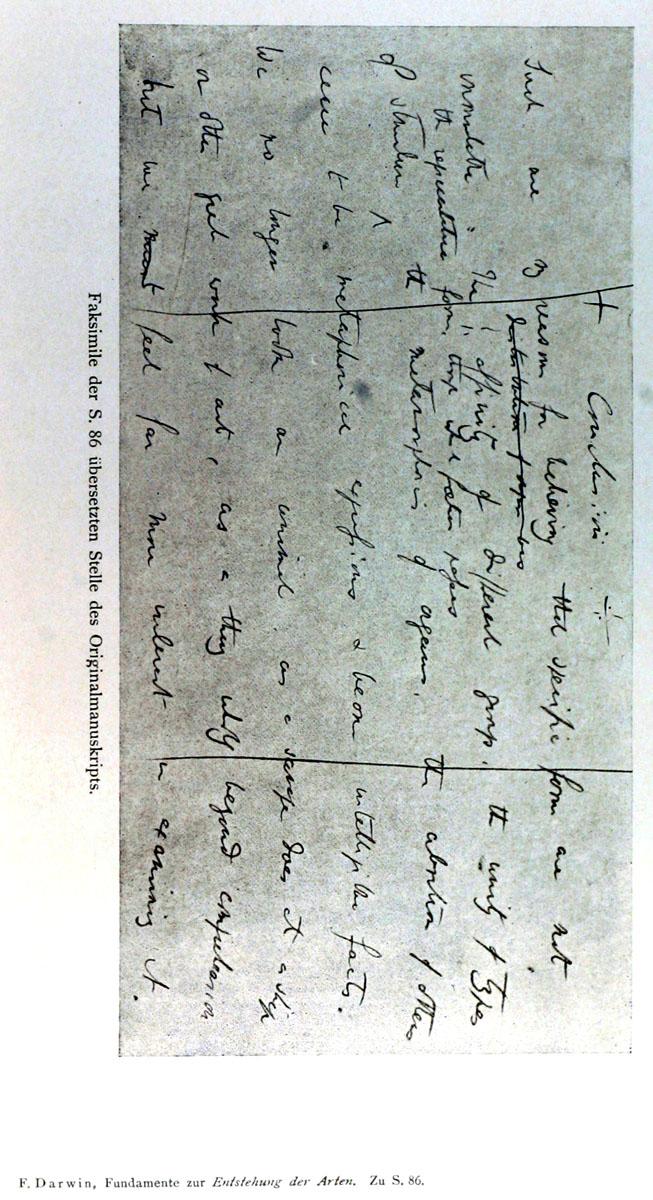 Conclusion
Such are my reasons for believing that specific forms are not
immutable. The affinity of different groups, the unity of types
the representative forms,
of structure ^ the metamorphosis of organs, the abortion of others
cease to be metaphorical expressions & become intelligible facts.
We no longer look an animal as a savage does at a ship
or other great work of art, as a thing wholly beyond comprehension
but we feel far more interest in examining it.
Faksimile der S. 86 übersetzten Stelle des Originalmanuskripts.
F. Darwin, Fundamente zur Entstehung der Arten. Zu S. 86.